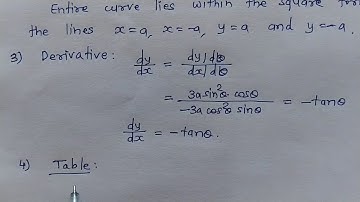 Entire curve lies within the square
the lines x=a, x=-a, y=a and y=-a.
3) Derivative: dy/dx = (dy/dθ)/(dx/dθ)
= (3a sin²θ cosθ)/(-3a cos²θ sinθ) = -tanθ
dy/dx = -tanθ.
4) Table: